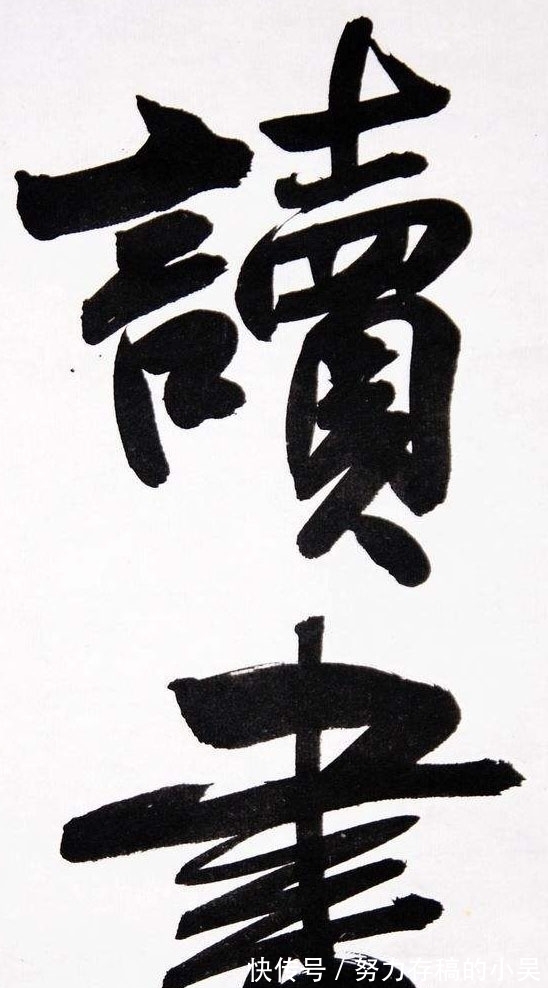 讀
書
快传号/努力存稿的小吴